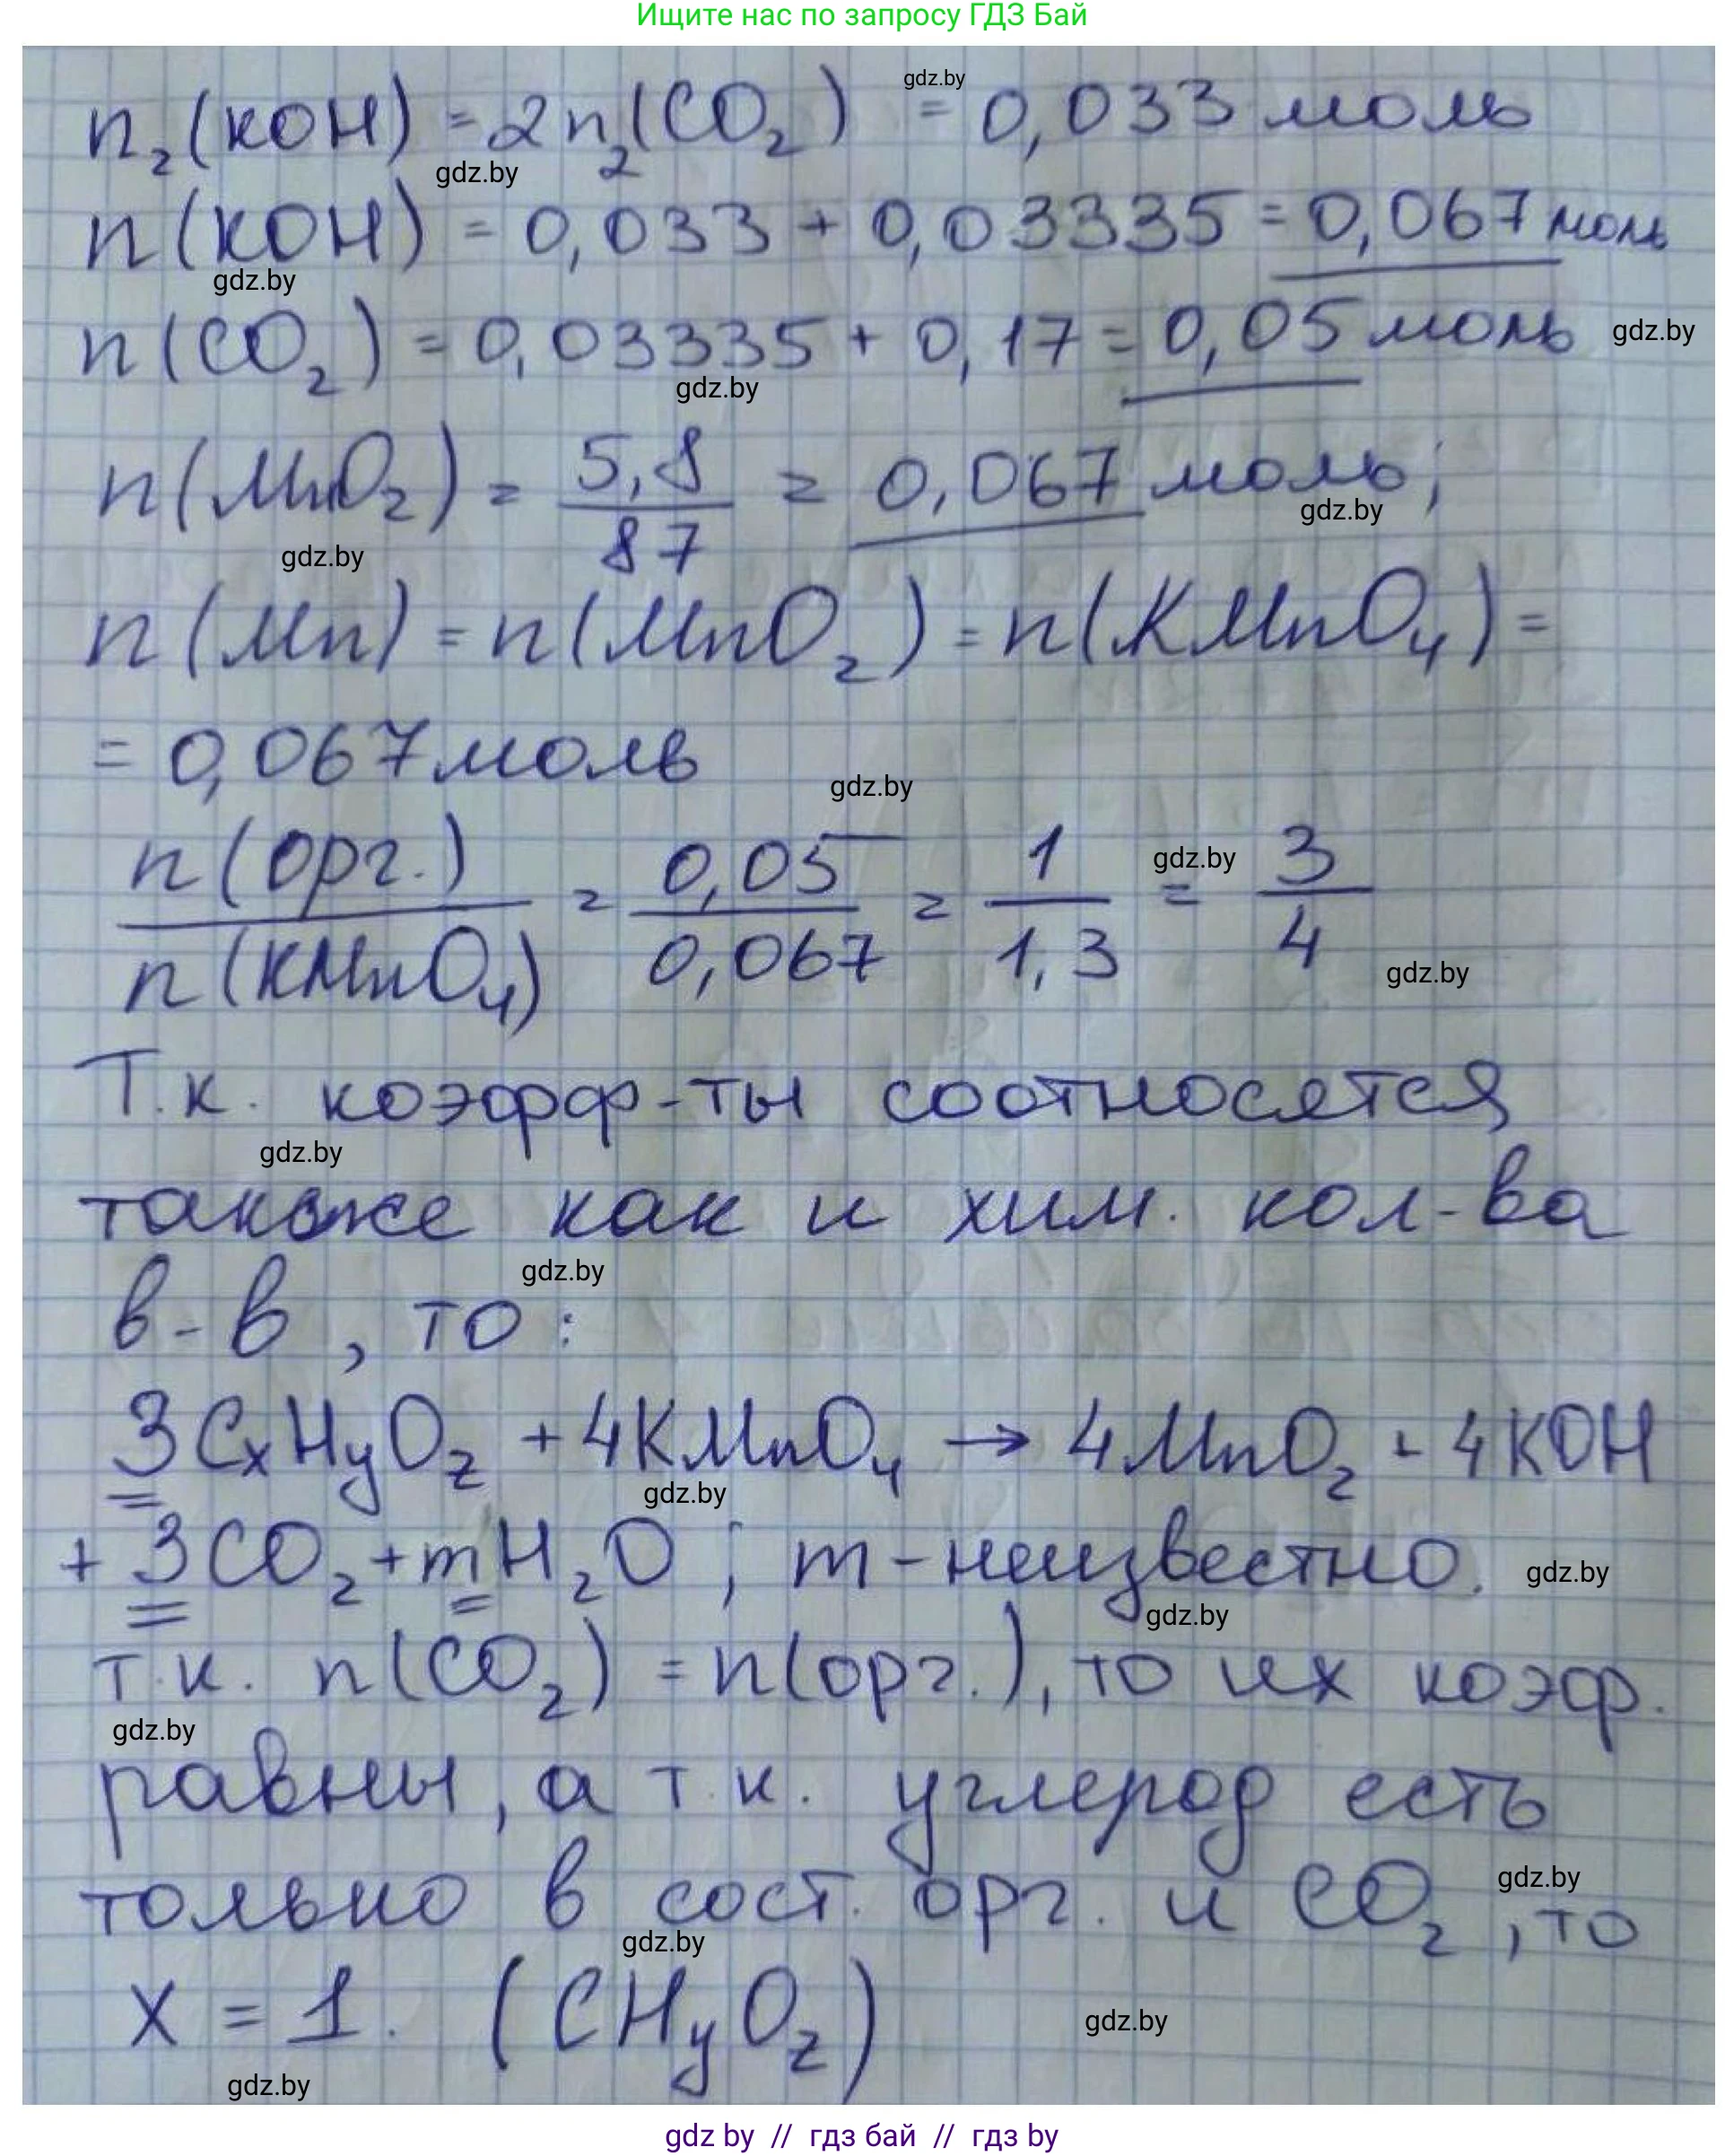 Ищите нас по запросу ГДЗ Бай
gdz.by
n₂(KOH) = 2n₂(CO₂) = 0,033 моль
gdz.by
n(KOH) = 0,033 + 0,03335 = 0,067 моль
gdz.by
n(CO₂) = 0,03335 + 0,17 = 0,05 моль gdz.by
gdz.by
n(MnO₂) = 5,8/87 = 0,067 моль;
gdz.by
gdz.by
n(Mn) = n(MnO₂) = n(KMnO₄) =
= 0,067 моль
gdz.by
n(орг.)/n(KMnO₄) = 0,05/0,067 = 1/1,3 = 3/4
gdz.by
gdz.by
Т.к. коэфф-ты соотносятся
gdz.by
также как и хим. кол-ва
gdz.by
в-в, то:
3CₓHyOz + 4KMnO₄ → 4MnO₂ + 4KOH
gdz.by
+ 3CO₂ + mH₂O; m - неизвестно. gdz.by
gdz.by
т.к. n(CO₂) = n(орг.), то их коэф.
gdz.by
равны, а т.к. углерод есть
только в сост. орг. и CO₂, то
gdz.by
gdz.by
x = 1. (CHyOz)
gdz.by
gdz.by
gdz by // гдз бай // гдз by